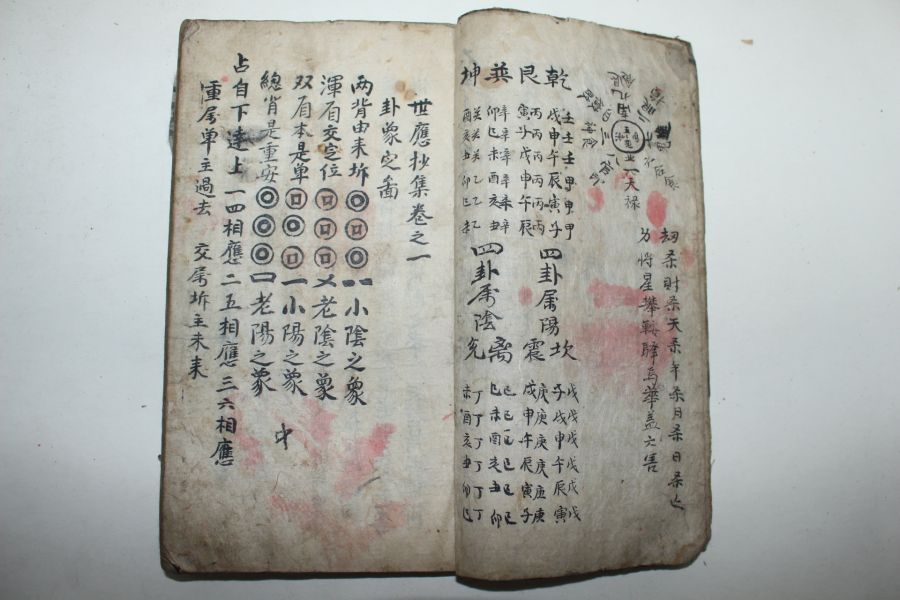 劫杀財杀天杀年杀月杀日杀亡
将星攀鞍驛馬華盖六害
一天祿
乾艮巽坤
壬壬壬甲甲甲
戌申午辰寅子
丙丙丙丙丙丙
寅子戌申午辰
辛辛辛辛辛辛
卯巳未酉亥丑
癸癸癸乙乙乙
酉亥丑卯巳未
四卦属陽坎震
四卦属陰离兌
戊戊戊戊戊戊
子戌申午辰寅
庚庚庚庚庚庚
戌申午辰寅子
己己己己己己
巳未酉亥丑卯
丁丁丁丁丁丁
未酉亥丑卯巳
世應抄集卷之一
卦象定啚
两背由来坼 小陰之象
渾眉交定位 乂老陰之象
双眉本是單 一小陽之象
總背是重安 口老陽之象
中
占自下達上一四相應二五相應三六相應
重属單主過去 交属坼主未来